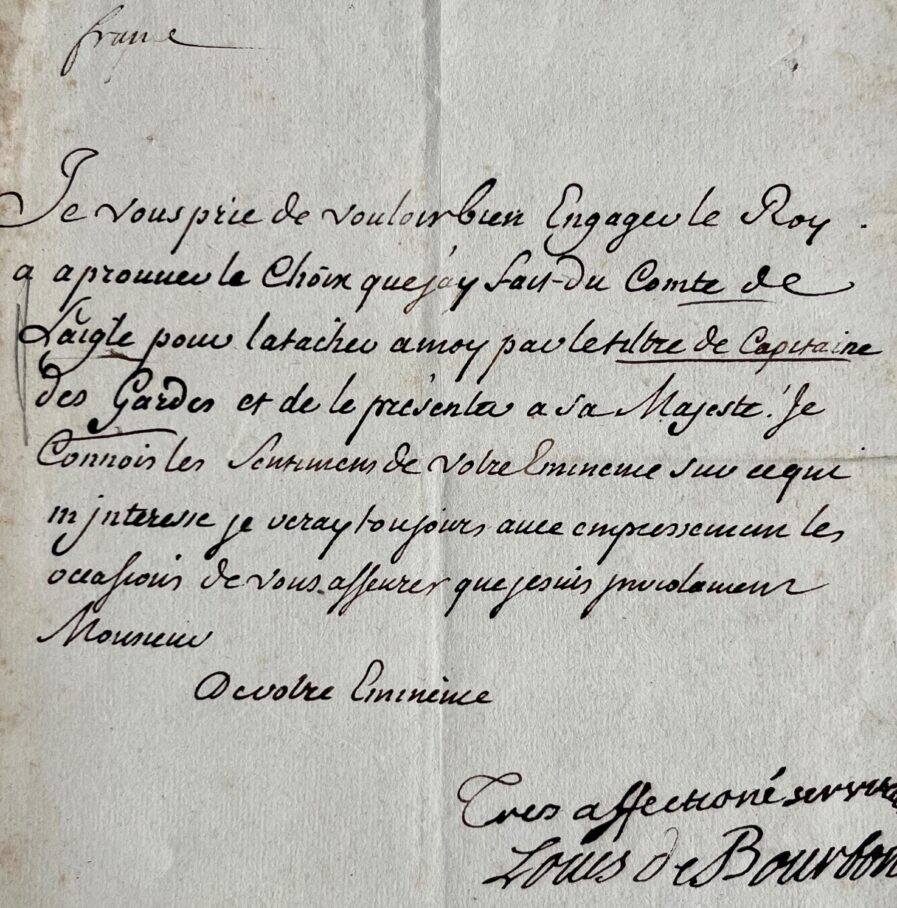 france
Je vous prie de vouloir bien Engager le Roy
a aprouver le Choix que j'ay fait du Comte de
Laigle pour latacher a moy par le tiltre de Capitaine
des Gardes et de le présenter a sa Majesté. Je
Connois les Sentimens de Votre Eminence sur ce qui
m'jnteresse je veray toujours avec empressement les
occasions de vous asseurer que je suis
Monsieur
De votre Eminence
Tres affectioné
Louis de Bourbon